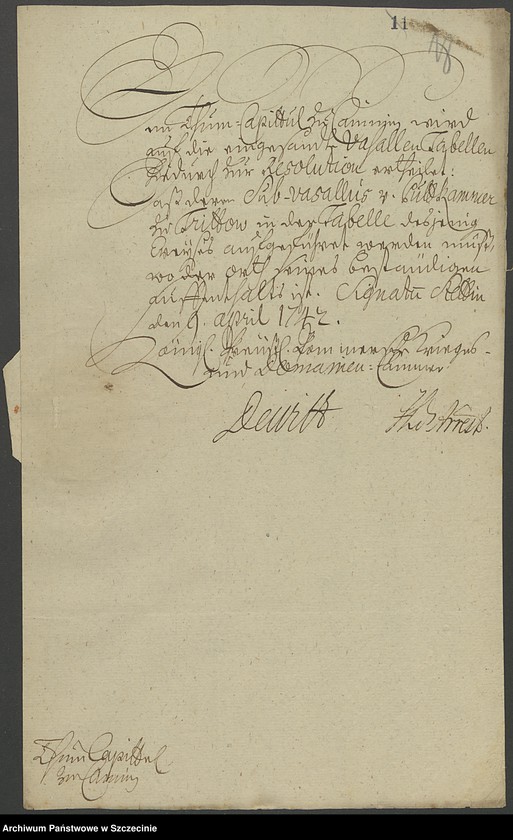 11
18
Dem Thum-Capittul zu Cammin wird
auf die eingesandte Vasallen Tabellen
hiedurch zur Resolution ertheilet:
daß deren Sub-vasallus v. Puttkammer
zu Trittow in der Tabelle desjenig
Creyses aufgeführet werden muß,
wo der orth seines beständigen
Auffenthalts ist. Signatu Stettin
den 9. April 1742.
Königl. Preußl. Pommersche Krieges-
und Domainen-Cammer
Dewitz
Thum Capittel
zu Camin
Archiwum Państwowe w Szczecinie